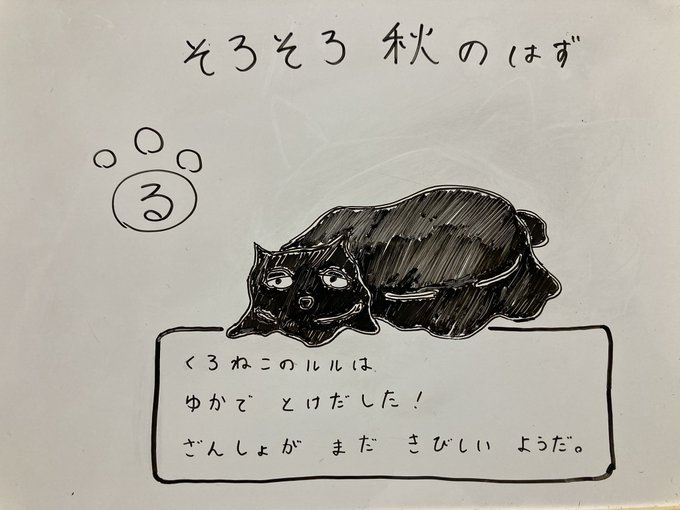 そろそろ 秋のはず
る
くろねこのルルは
ゆかで とけだした!
ざんしょが まだ きびしい ようだ。